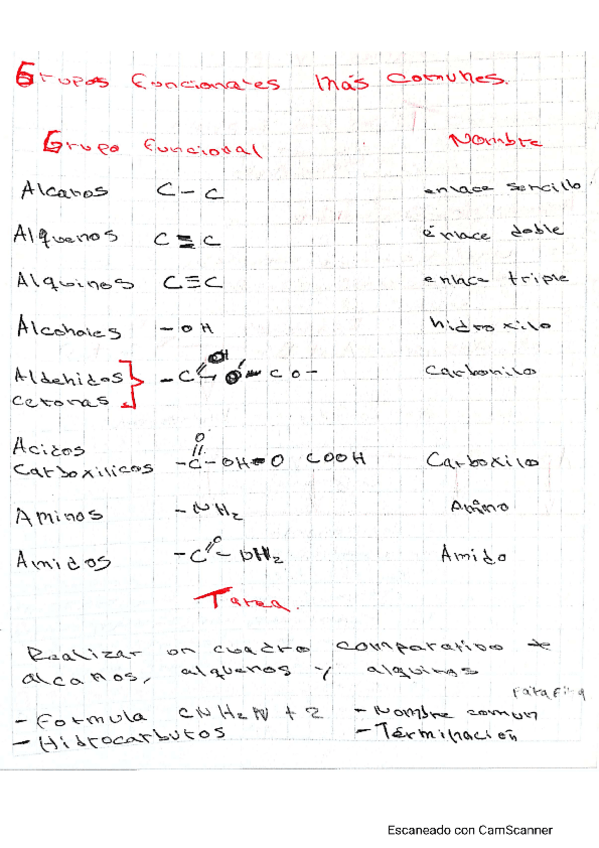 Grupos funcionales más comunes.
Grupo funcional Nombre
Alcanos C – C enlace sencillo
Alquenos C = C enlace doble
Alquinos C ≡ C enlace triple
Alcoholes – OH hidroxilo
Aldehidos – C – CO – Carbonilo
cetonas
O
Acidos
Carboxilicos – C – OH O COOH Carboxilo
Aminos – NH2 Amino
O
Amidos – C – NH2 Amido
Tarea.
Realizar un cuadro comparativo
alcanos, alquenos y alquinos
Parafina
– Formula CNH2N + 2 – Nombre comun
– Hidrocarburos – Terminación
Escaneado con CamScanner